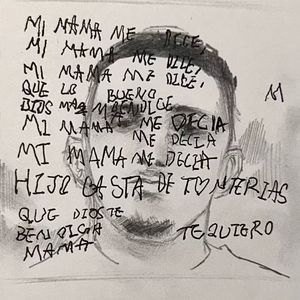 MI MAMA ME DICE,
MI MAMA ME DICE,
MI MAMA ME DICE,
QUE LO BUENO
DIOS MAS BENDICE
MI MAMA ME DECIA
ME DECIA
MI MAMA ME DECIA
HIJO BASTA DE TONTERIAS
QUE DIOS TE
BENDIGA TE QUIERO
MAMA